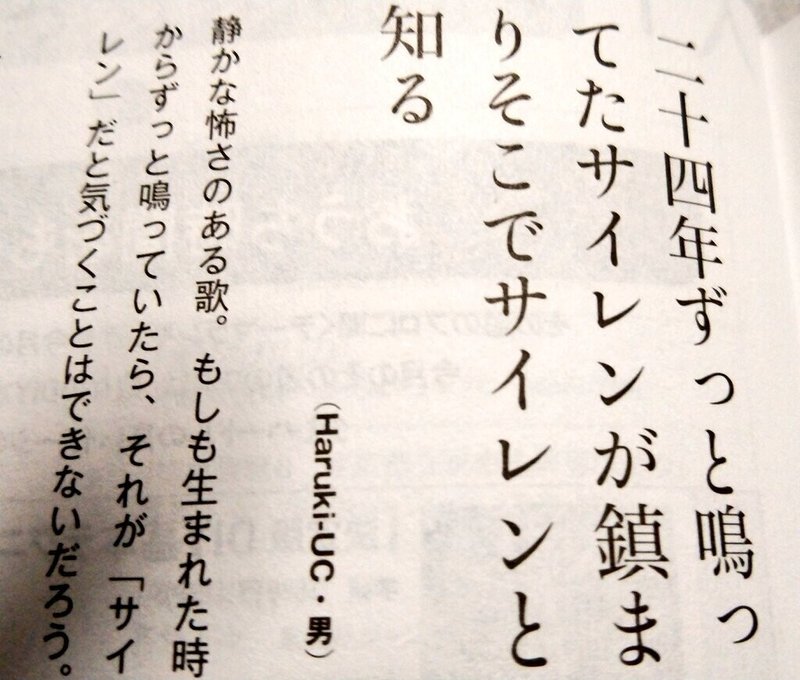 二十四年ずっと鳴っ
てたサイレンが鎮ま
りそこでサイレンと
知る
（Haruki-UC・男）
静かな怖さのある歌。もしも生まれた時
からずっと鳴っていたら、それが「サイ
レン」だと気づくことはできないだろう。